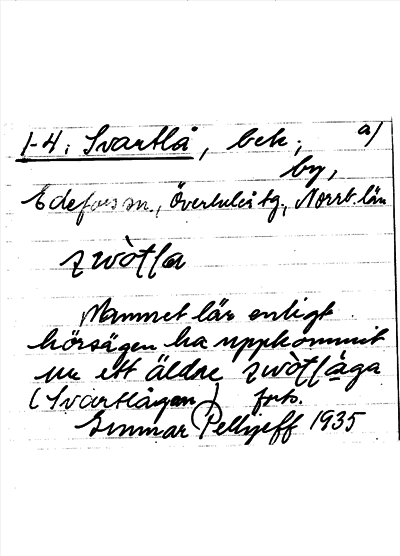 1-4. Svartlå, bek.; a)
by,
Edefors sn., Överluleå tg., Norrb. län
zwòtla
Namnet lär enligt
hörsägen ha uppkommit
ur ett äldre zwòtlåga
(Svartlågan) forts.
Gunnar Pellijeff 1935